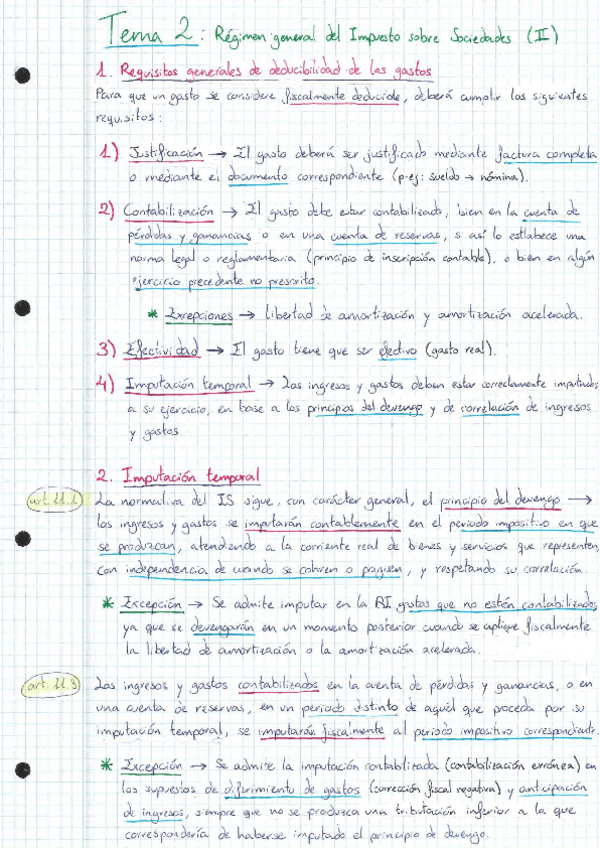 Tema 2: Régimen general del Impuesto sobre Sociedades (II)
1. Requisitos generales de deducibilidad de los gastos
Para que un gasto se considere fiscalmente deducible, deberá cumplir los siguientes
requisitos:
1) Justificación → El gasto deberá ser justificado mediante factura completa
o mediante el documento correspondiente (p.ej: sueldo → nómina).
2) Contabilización → El gasto debe estar contabilizado, bien en la cuenta de
pérdidas y ganancias o en una cuenta de reservas, si así lo establece una
norma legal o reglamentaria (principio de inscripción contable), o bien en algún
ejercicio precedente no prescrito.
* Excepciones → libertad de amortización y amortización acelerada.
3) Efectividad → El gasto tiene que ser efectivo (gasto real).
4) Imputación temporal → Los ingresos y gastos deben estar correctamente imputados
a su ejercicio, en base a los principios del devengo y de correlación de ingresos
y gastos
2. Imputación temporal
art. 11.1 La normativa del IS sigue, con carácter general, el principio del devengo →
los ingresos y gastos se imputarán contablemente en el periodo impositivo en que
se produzcan, atendiendo a la corriente real de bienes y servicios que representen,
con independencia de cuando se cobren o paguen, y respetando su correlación.
* Excepción → Se admite imputar en la BI gastos que no estén contabilizados,
ya que se devengarán en un momento posterior cuando se aplique fiscalmente
la libertad de amortización o la amortización acelerada.
art. 11.3 Los ingresos y gastos contabilizados en la cuenta de pérdidas y ganancias, o en
una cuenta de reservas, en un periodo distinto de aquél que proceda por su
imputación temporal, se imputarán fiscalmente al periodo impositivo correspondiente.
* Excepción → Se admite la imputación contabilizada (contabilización errónea) en
los supuestos de diferimiento de gastos (corrección fiscal negativa) y anticipación
de ingresos, siempre que no se produzca una tributación inferior a la que
correspondería de haberse imputado el principio de devengo.